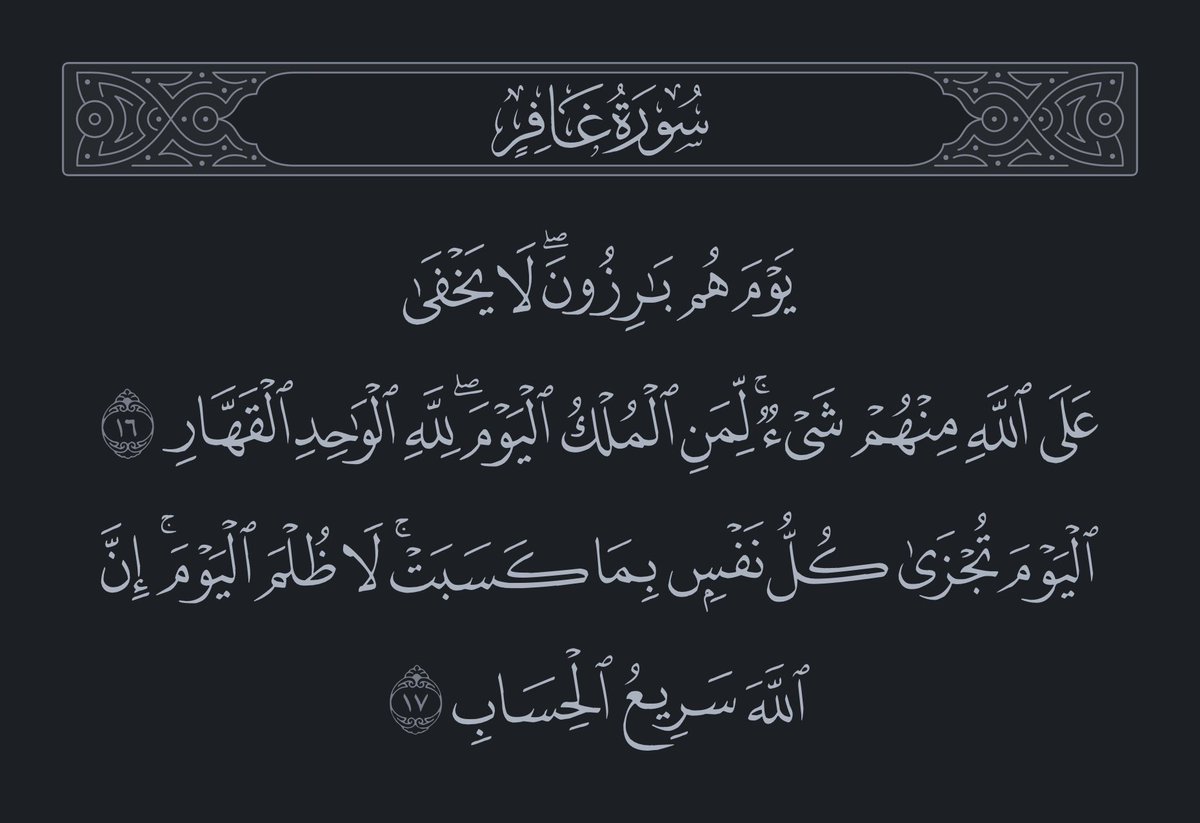 سُورَةُ غَافِرٍ
يَوْمَ هُم بَٰرِزُونَۖ لَا يَخْفَىٰ
عَلَى ٱللَّهِ مِنْهُمْ شَىْءٌۚ لِّمَنِ ٱلْمُلْكُ ٱلْيَوْمَۖ لِلَّهِ ٱلْوَٰحِدِ ٱلْقَهَّارِ ١٦
ٱلْيَوْمَ تُجْزَىٰ كُلُّ نَفْسٍۭ بِمَا كَسَبَتْۚ لَا ظُلْمَ ٱلْيَوْمَۚ إِنَّ
ٱللَّهَ سَرِيعُ ٱلْحِسَابِ ١٧